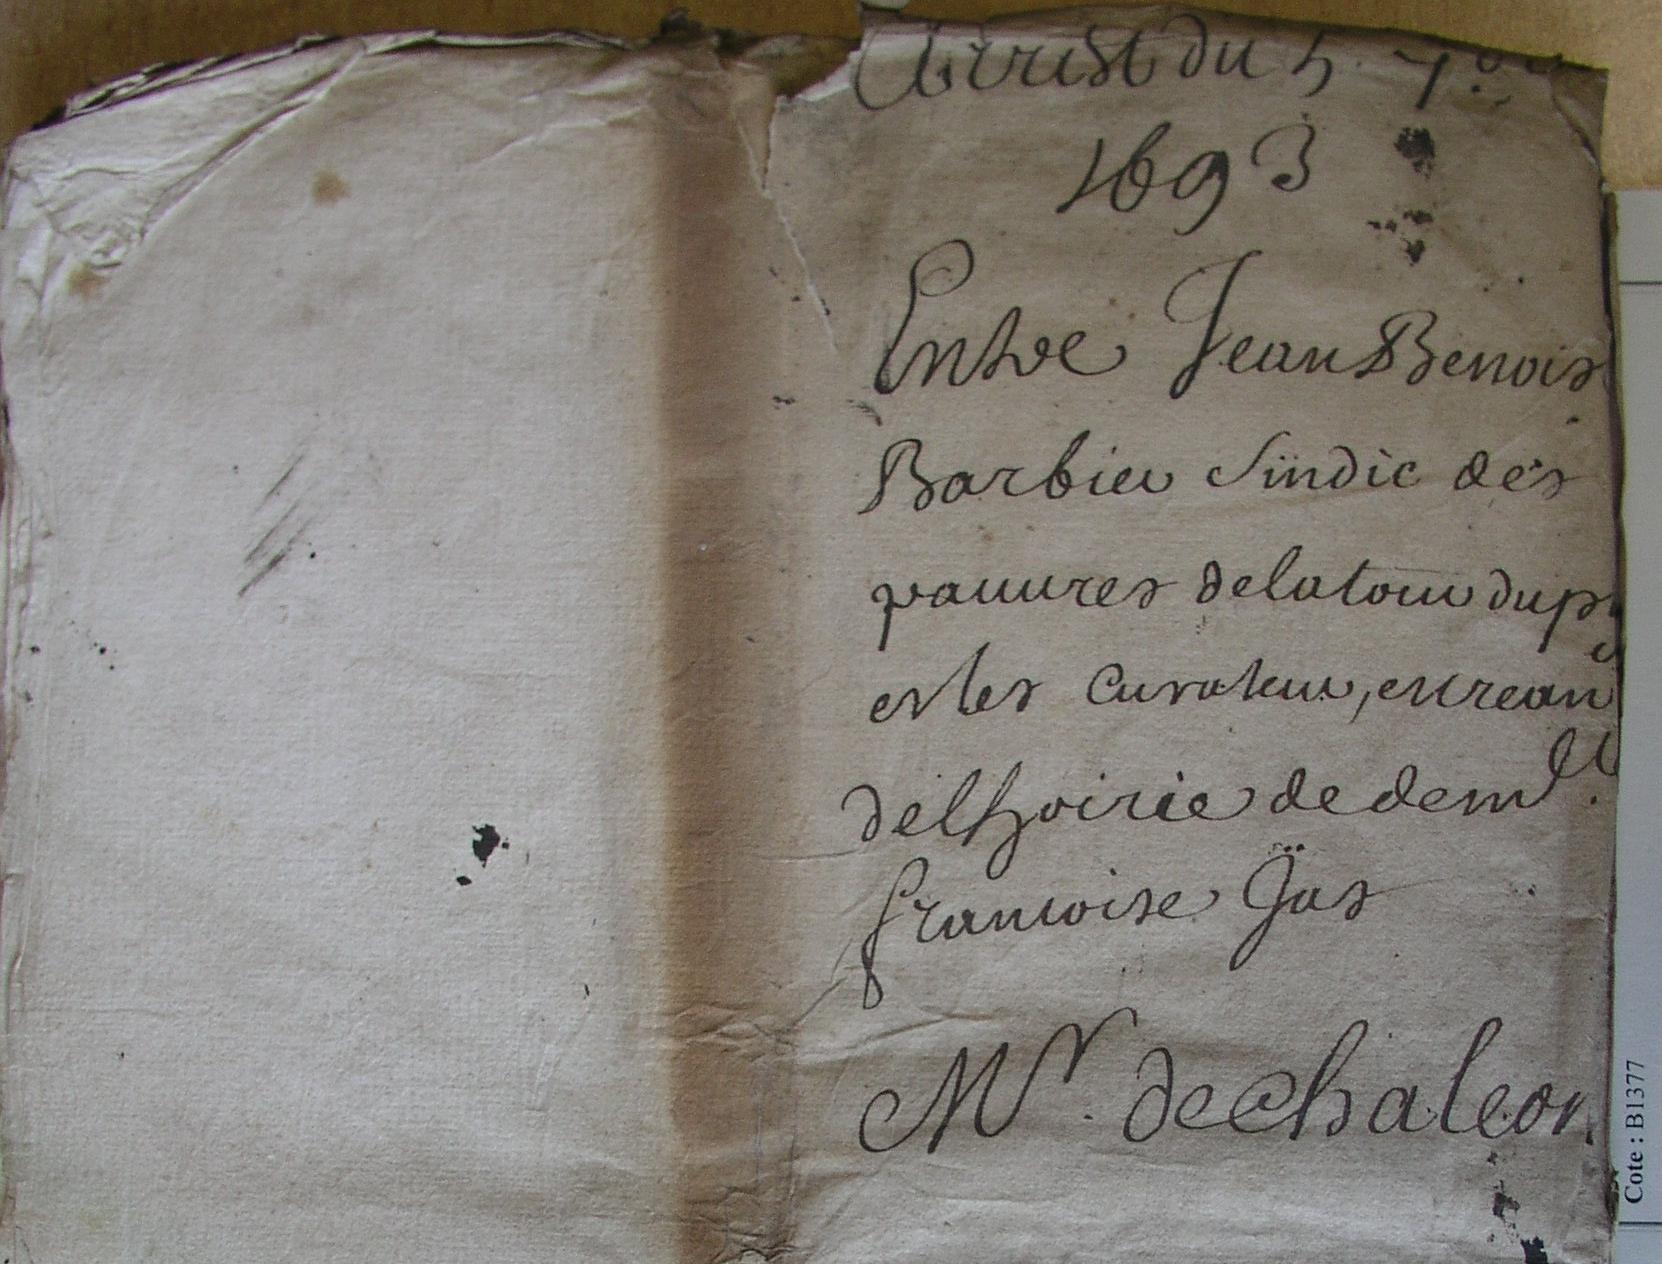 Arrest du 5 7bre
1693
Entre Jean Benois
Barbier sindic des
pauures de la tour du p
et les curateur, en
de lhoirie de demlle.
francoise Gas
Mr. de chaleon
Cote : B1377